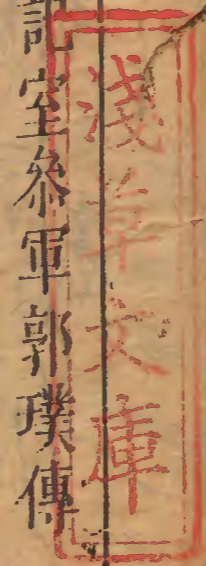 淺草文庫
記室參軍郭璞傳